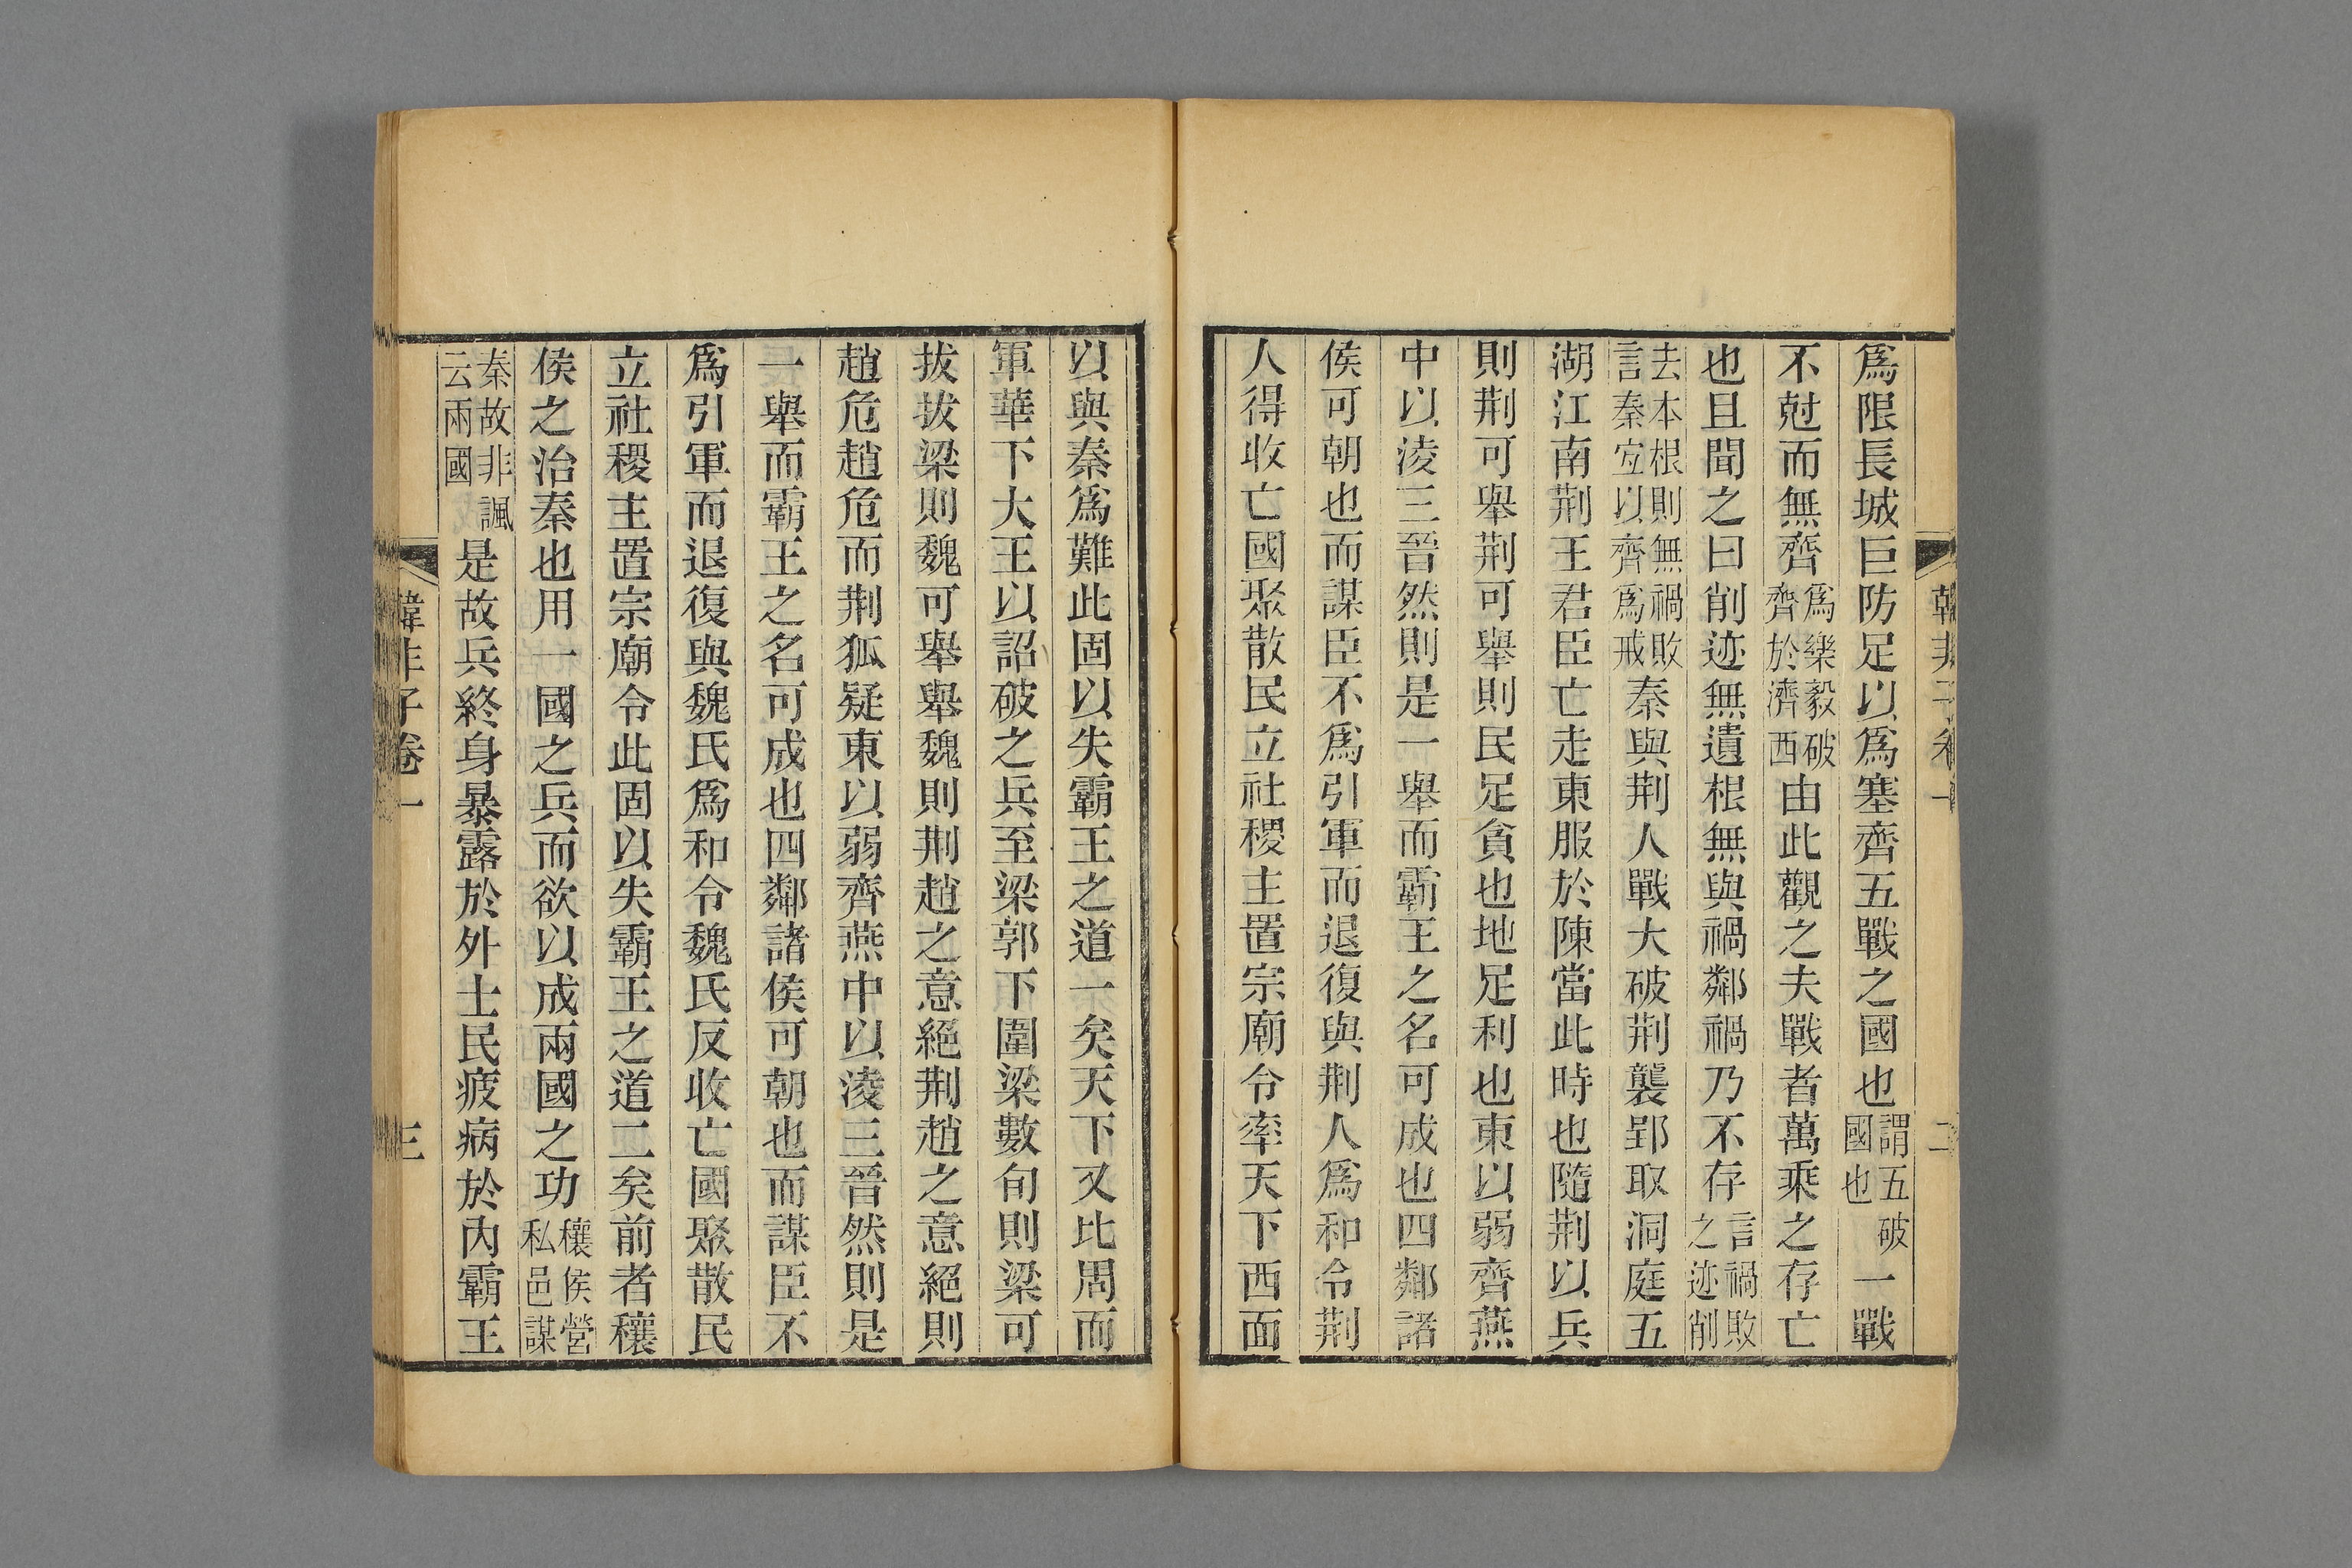 韓非子卷一
二
爲限長城巨防足以爲塞齊五戰之國也謂五破國也一戰
不尅而無齊爲樂毅破齊於濟西由此觀之夫戰者萬乘之存亡
也且聞之曰削迹無遺根無與禍鄰禍乃不存言禍敗之迹削
去本根則無禍敗言秦宜以齊爲戒秦與荆人戰大破荆襲郢取洞庭五
湖江南荆王君臣亡走東服於陳當此時也隨荆以兵
則荆可舉荆可舉則民足貪也地足利也東以弱齊燕
中以淩三晉然則是一舉而霸王之名可成也四鄰諸
侯可朝也而謀臣不爲引軍而退復與荆人爲和令荆
人得收亡國聚散民立社稷主置宗廟令率天下西面
以與秦爲難此固以失霸王之道一矣天下又比周而
軍華下大王以詔破之兵至梁郭下圍梁數旬則梁可
拔拔梁則魏可舉舉魏則荆趙之意絕荆趙之意絕則
趙危趙危而荆狐疑東以弱齊燕中以淩三晉然則是
一舉而霸王之名可成也四鄰諸侯可朝也而謀臣不
爲引軍而退復與魏氏爲和令魏氏反收亡國聚散民
立社稷主置宗廟令此固以失霸王之道二矣前者穰
侯之治秦也用一國之兵而欲以成兩國之功穰侯營私邑謀
秦故非諷云兩國是故兵終身暴露於外士民疲病於內霸王
韓非子卷一
三